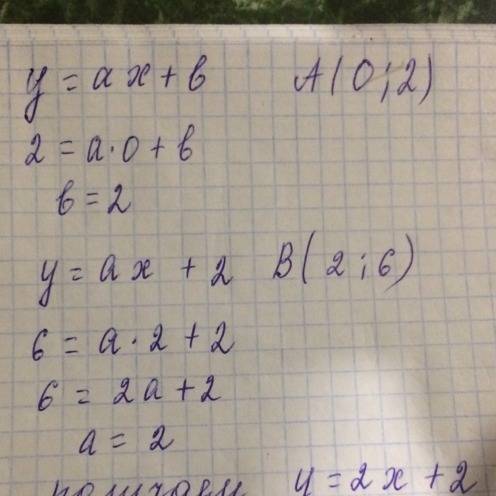 y = ax + b A(0;2)
2 = a·0 + b
b = 2
y = ax + 2 B(2;6)
6 = a·2 + 2
6 = 2a + 2
a = 2
получаем y = 2x + 2